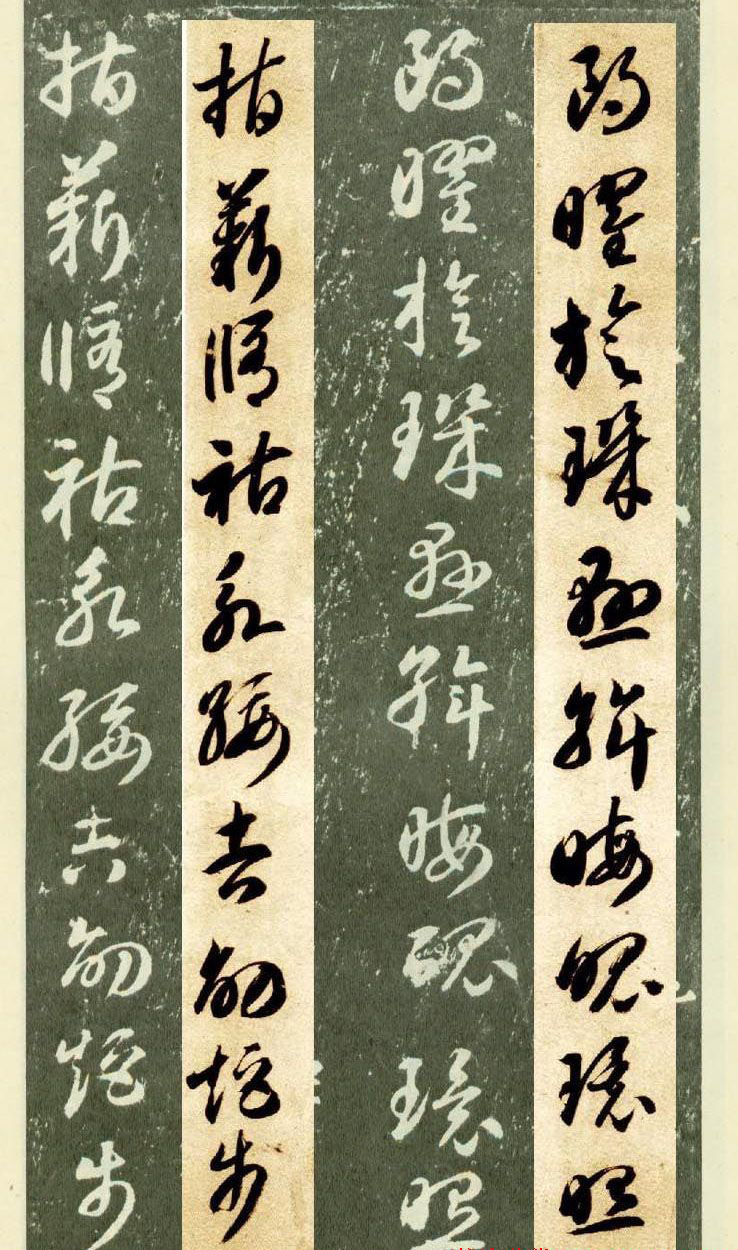 朗曜旋璣懸斡晦魄環照
朗曜旋璣懸斡晦魄環照
指薪修祜永綏吉劭矩步
指薪修祜永綏吉劭矩步